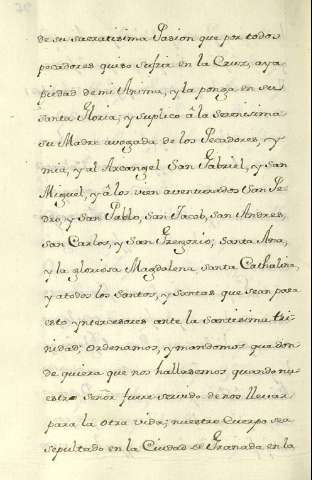 de su sacratisima Pasion que por todos
pecadores quiso sufrir en la Cruz, aya
piedad de mi Anima, y la ponga en su
santa Gloria; y suplico â la serenisima
su Madre avogada de los Pecadores, y
mia, y al Arcangel San Gabriel, y San
Miguel, y â los vien aventurados San Pe-
dro, y San Pablo, San Jacob, San Andres,
San Carlos, y San Gregorio; Santa Ana,
y la gloriosa Magdalena santa Cathalina,
y atodos los Santos, y Santas que sean para
esto yntercesores ante la Santisima tri-
nidad; Ordenamos, y mandamos que don
de quiera que nos hallasemos quando nu-
estro Señor fuere servido de nos llevar
para la otra vida; nuestro Cuerpo sea
sepultado en la Ciudad de Granada en la